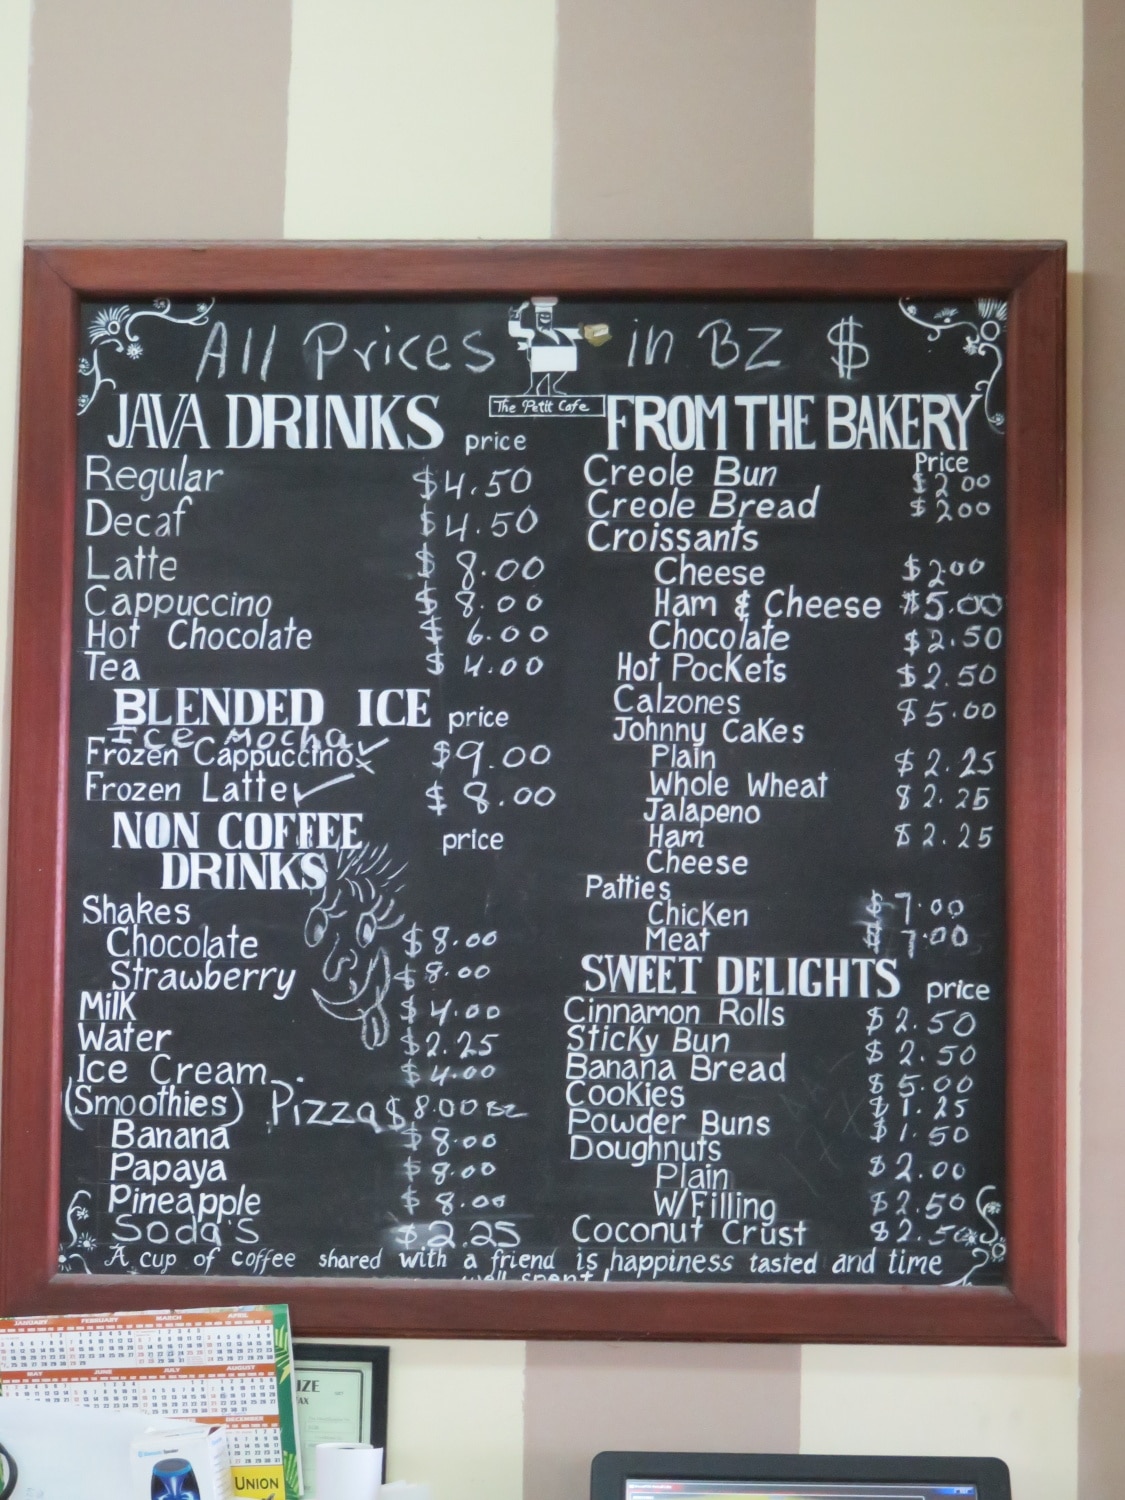 All Prices in BZ $
The Petit Cafe
JAVA DRINKS price
Regular $4.50
Decaf $4.50
Latte $8.00
Cappuccino $8.00
Hot Chocolate $6.00
Tea $4.00
BLENDED ICE price
Ice Mocha
Frozen Cappuccino $9.00
Frozen Latte $8.00
NON COFFEE price
DRINKS
Shakes
Chocolate $8.00
Strawberry $8.00
Milk $4.00
Water $2.25
Ice Cream $4.00
(Smoothies) Pizza $8.00 BZ
Banana $8.00
Papaya $8.00
Pineapple $8.00
Soda's $2.25
FROM THE BAKERY
Price
Creole Bun $2.00
Creole Bread $2.00
Croissants
Cheese $2.00
Ham & Cheese $5.00
Chocolate $2.50
Hot Pockets $2.50
Calzones $5.00
Johnny Cakes
Plain $2.25
Whole Wheat $2.25
Jalapeno
Ham $2.25
Cheese
Patties
Chicken $7.00
Meat $7.00
SWEET DELIGHTS price
Cinnamon Rolls $2.50
Sticky Bun $2.50
Banana Bread $5.00
Cookies $1.25
Powder Buns $1.50
Doughnuts
Plain $2.00
W/Filling $2.50
Coconut Crust $2.50
A cup of coffee shared with a friend is happiness tasted and time
well spent!
JANUARY FEBRUARY MARCH APRIL
MAY JUNE JULY AUGUST
DECEMBER
UNION